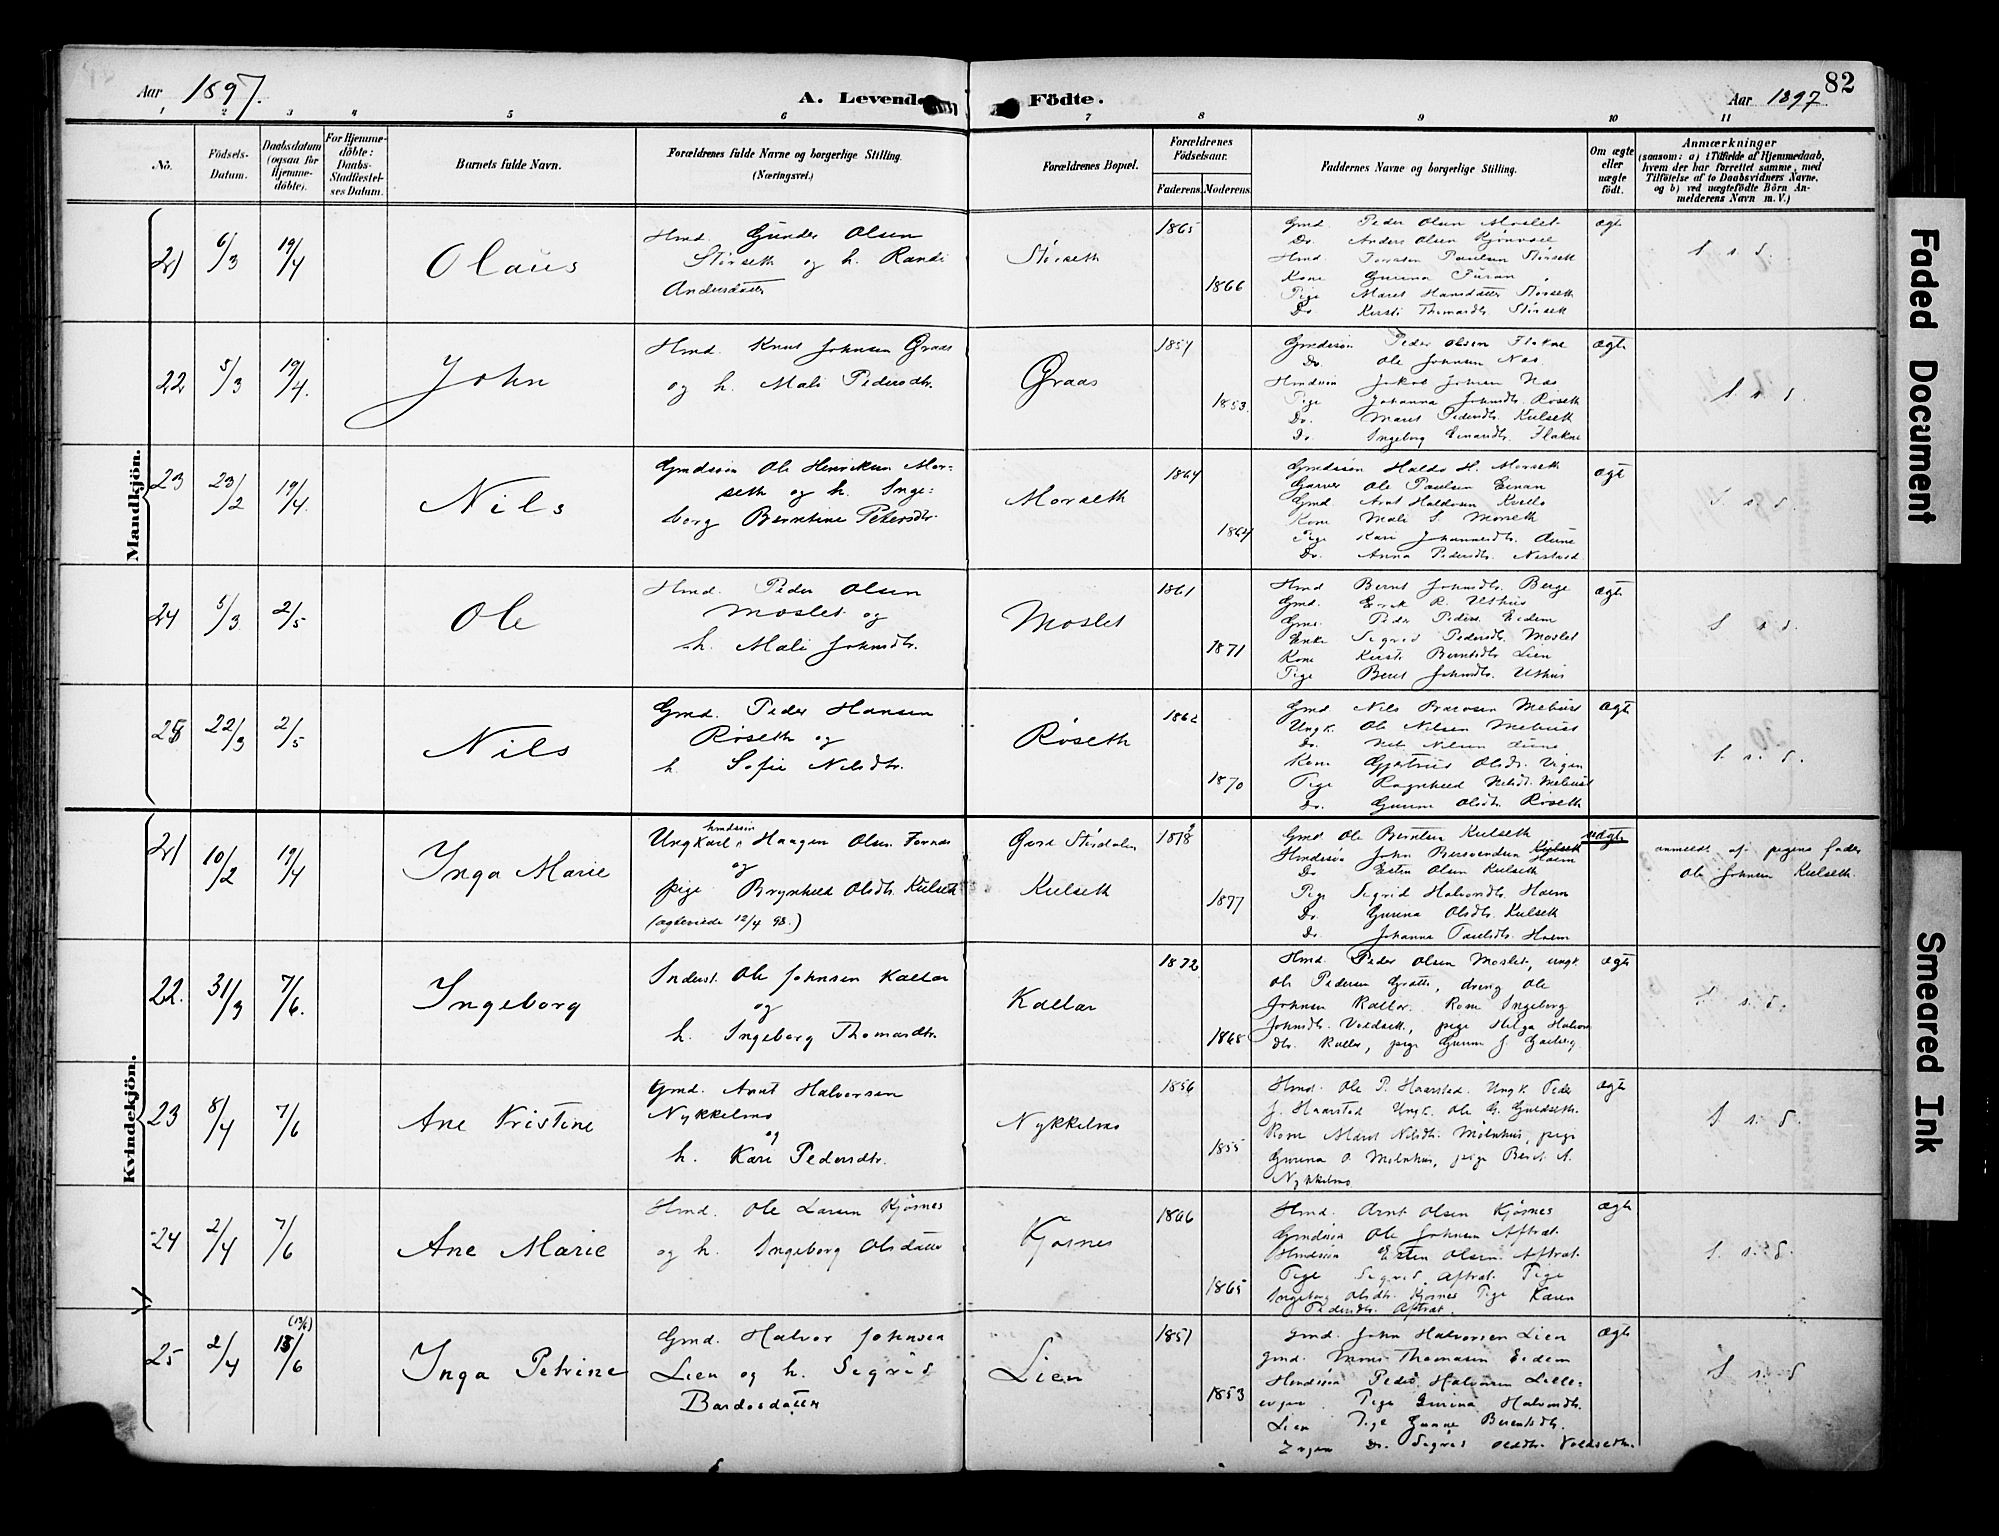 82
Aar 1897.
A. Levende Födte.
Aar 1897
1 2 3 4 5 6 7 8 9 10 11
No.
Födsels-Datum.
Daabsdatum (ogsaa for Hjemme-döbte).
For Hjemme-döbte: Daabs-Stadfæstel-ses Datum.
Barnets fulde Navn.
Forældrenes fulde Navne og borgerlige Stilling.
(Næringsvei.)
Forældrenes Bopæl.
Forældrenes Födselsaar.
Faderens. Moderens.
Faddernes Navne og borgerlige Stilling.
Om ægte eller uægte födt.
Anmærkninger
(saasom: a) i Tilfælde af Hjemmedaab,
hvem der har forrettet samme, med
Tilföielse af to Daabsvidners Navne,
og b) ved uægtefödte Börn An-
melderens Navn m. V.)
Mandkjön.
21 6/3 19/4 Olaus
Hmd. Gunder Olsen
Störseth og h. Randi
Andersdatter
Störseth
1865
1866
Gmd Peder Olsen Moslet
Do. Anders Olsen
Hmd. Paulsen Störseth
Kone Guruna Furan
Pige Maret Hansdatter Störseth
Do. Kirsti Thomasdtr. Störseth
ægte
s. s. d.
22 5/3 19/4. John
Hmd. Knut Johnsen Graas
og h. Mali Pedersdtr.
Graas
1854
1853.
Gmdssön Peder Olsen Flakne
Do. Ole Johnsen Næs
Hmdssön Jakob Johnsen Næs
Pige Johanna Johnsdtr. Röseth
Do. Maret Pedersdtr. Kulseth
Do. Ingeborg Einarsdtr. Flakne
ægte
s. s. d.
23 23/2 19/4. Nils
Gmdssön Ole Henriksen Mor-
seth og h. Inge-
borg Berntine Petersdtr.
Morseth
1864
1864
Gmdssön Haldo H. Morseth
Garver Ole Paulsen Einan
Gmd. Arnt Haldosen Kvello
Kone Mali S. Morseth
Pige Kari Johannesdtr. Aune
Do. Anna Pedersdtr. Nestavd
ægte
s. s. d.
24 5/3 2/5 Ole
Hmd. Peder Olsen
Moslet og
h. Mali Johnsdtr.
Moslet
1861
1871
Hmd Bernt Johnsdtr. Berge
Gmd. Erik R. Uthus
Gmd. Peder Peders. Eidem
Enke Sigrid Pedersdtr. Moslet
Kone Kirsti Berntsdtr. Lien
Pige Beret Johnsdtr. Uthus
ægte
s. s. d.
25 22/3 2/5 Nils
Gmd. Peder Hansen
Röseth og
h. Sofie Nilsdtr.
Röseth
1862
1870
Gmd Nils Mebust
Ungk. Ole Nilsen Mebust
Do. Nils Nilsen Aune
Kone Gjertrud Olsdtr. Vigen
Pige Ragnhild Nilsdt. Mebust
Do. Guruna Olsdtr. Röseth
ægte
s. s. d.
Kvindekjön.
21 10/2 19/4 Inga Marie
hmdssön
Ungkarl Haagen Olsen Fornes
og
pige Brynhild Olsdtr. Kulseth
(ægteviede 12/4 98.)
Övre Stördalen
Kulseth
1878
1877
Gmd Ole Berntsen Kulseth
Hmdssön John Bersvendsen Kulseth Haem
Do. Esten Olsen Kulseth
Pige Sigrid Halvorsdtr. Haem
Do. Guruna Olsdtr. Kulseth
Do. Johanna Paulsdtr. Haem
uægte
anmeldt af pigens fader
Ole Johnsen Kulseth.
22. 31/3 7/6. Ingeborg
Inderst. Ole Johnsen Kallar
og
h. Ingeborg Thomasdtr.
Kallar
1872
1868
Hmd. Peder Olsen Moslet, ungk.
Ole Pedersen Grötte, dreng Ole
Johnsen Kallar. Kone Ingeborg
Johnsdtr. Voldseth, pige Helga Halvor
dtr. Kallar, pige Guruna J.
ægte
s. s. d.
23 8/4 7/6 Ane Kristine
Gmd. Arnt Halvorsen
Nykkelmo
og
h. Kari Pedersdtr.
Nykkelmo
1856
1855
Hmd. Ole P. Haarstad. Ungk. Peder
J. Haarstad Ungk. Ole G. Guldseth.
Kone Maret Nilsdtr. Mölnhus, pige
Guruna O. Mölnhus, pige Beret A.
Nykkelmo
ægte
s. s. d.
24 2/4 7/6 Ane Marie
Hmd. Ole Larsen Kjösnes
og h. Ingeborg Olsdatter
Kjösnes
1866
1865
Hmd. Arnt Olsen Kjösnes
Gmdssön Ole Johnsen Aftret.
Hmdssön Esten Olsen Aftret.
Pige Sigrid Aftret. Pige
Ingeborg Olsdtr. Kjösnes Pige Karen
Pedersdtr. Aftret.
ægte
s. s. d.
25 2/4 (13/6) 13/6 Inga Petrine
Gmd. Halvor Johnsen
Lien og h. Sigrid
Bardosdatter
Lien
1851
1853
Gmd. John Halvorsen Lien
Gmd. Thomasen Eidem
Hmdssön Peder Halvorsen Lille-
evjen Pige Guruna Halvorsdtr.
Lien Pige Gunne Berentsdtr.
Do. Sigrid Olsdtr. Voldseth.
ægte
s. s. d
Faded Document
Smeared Ink